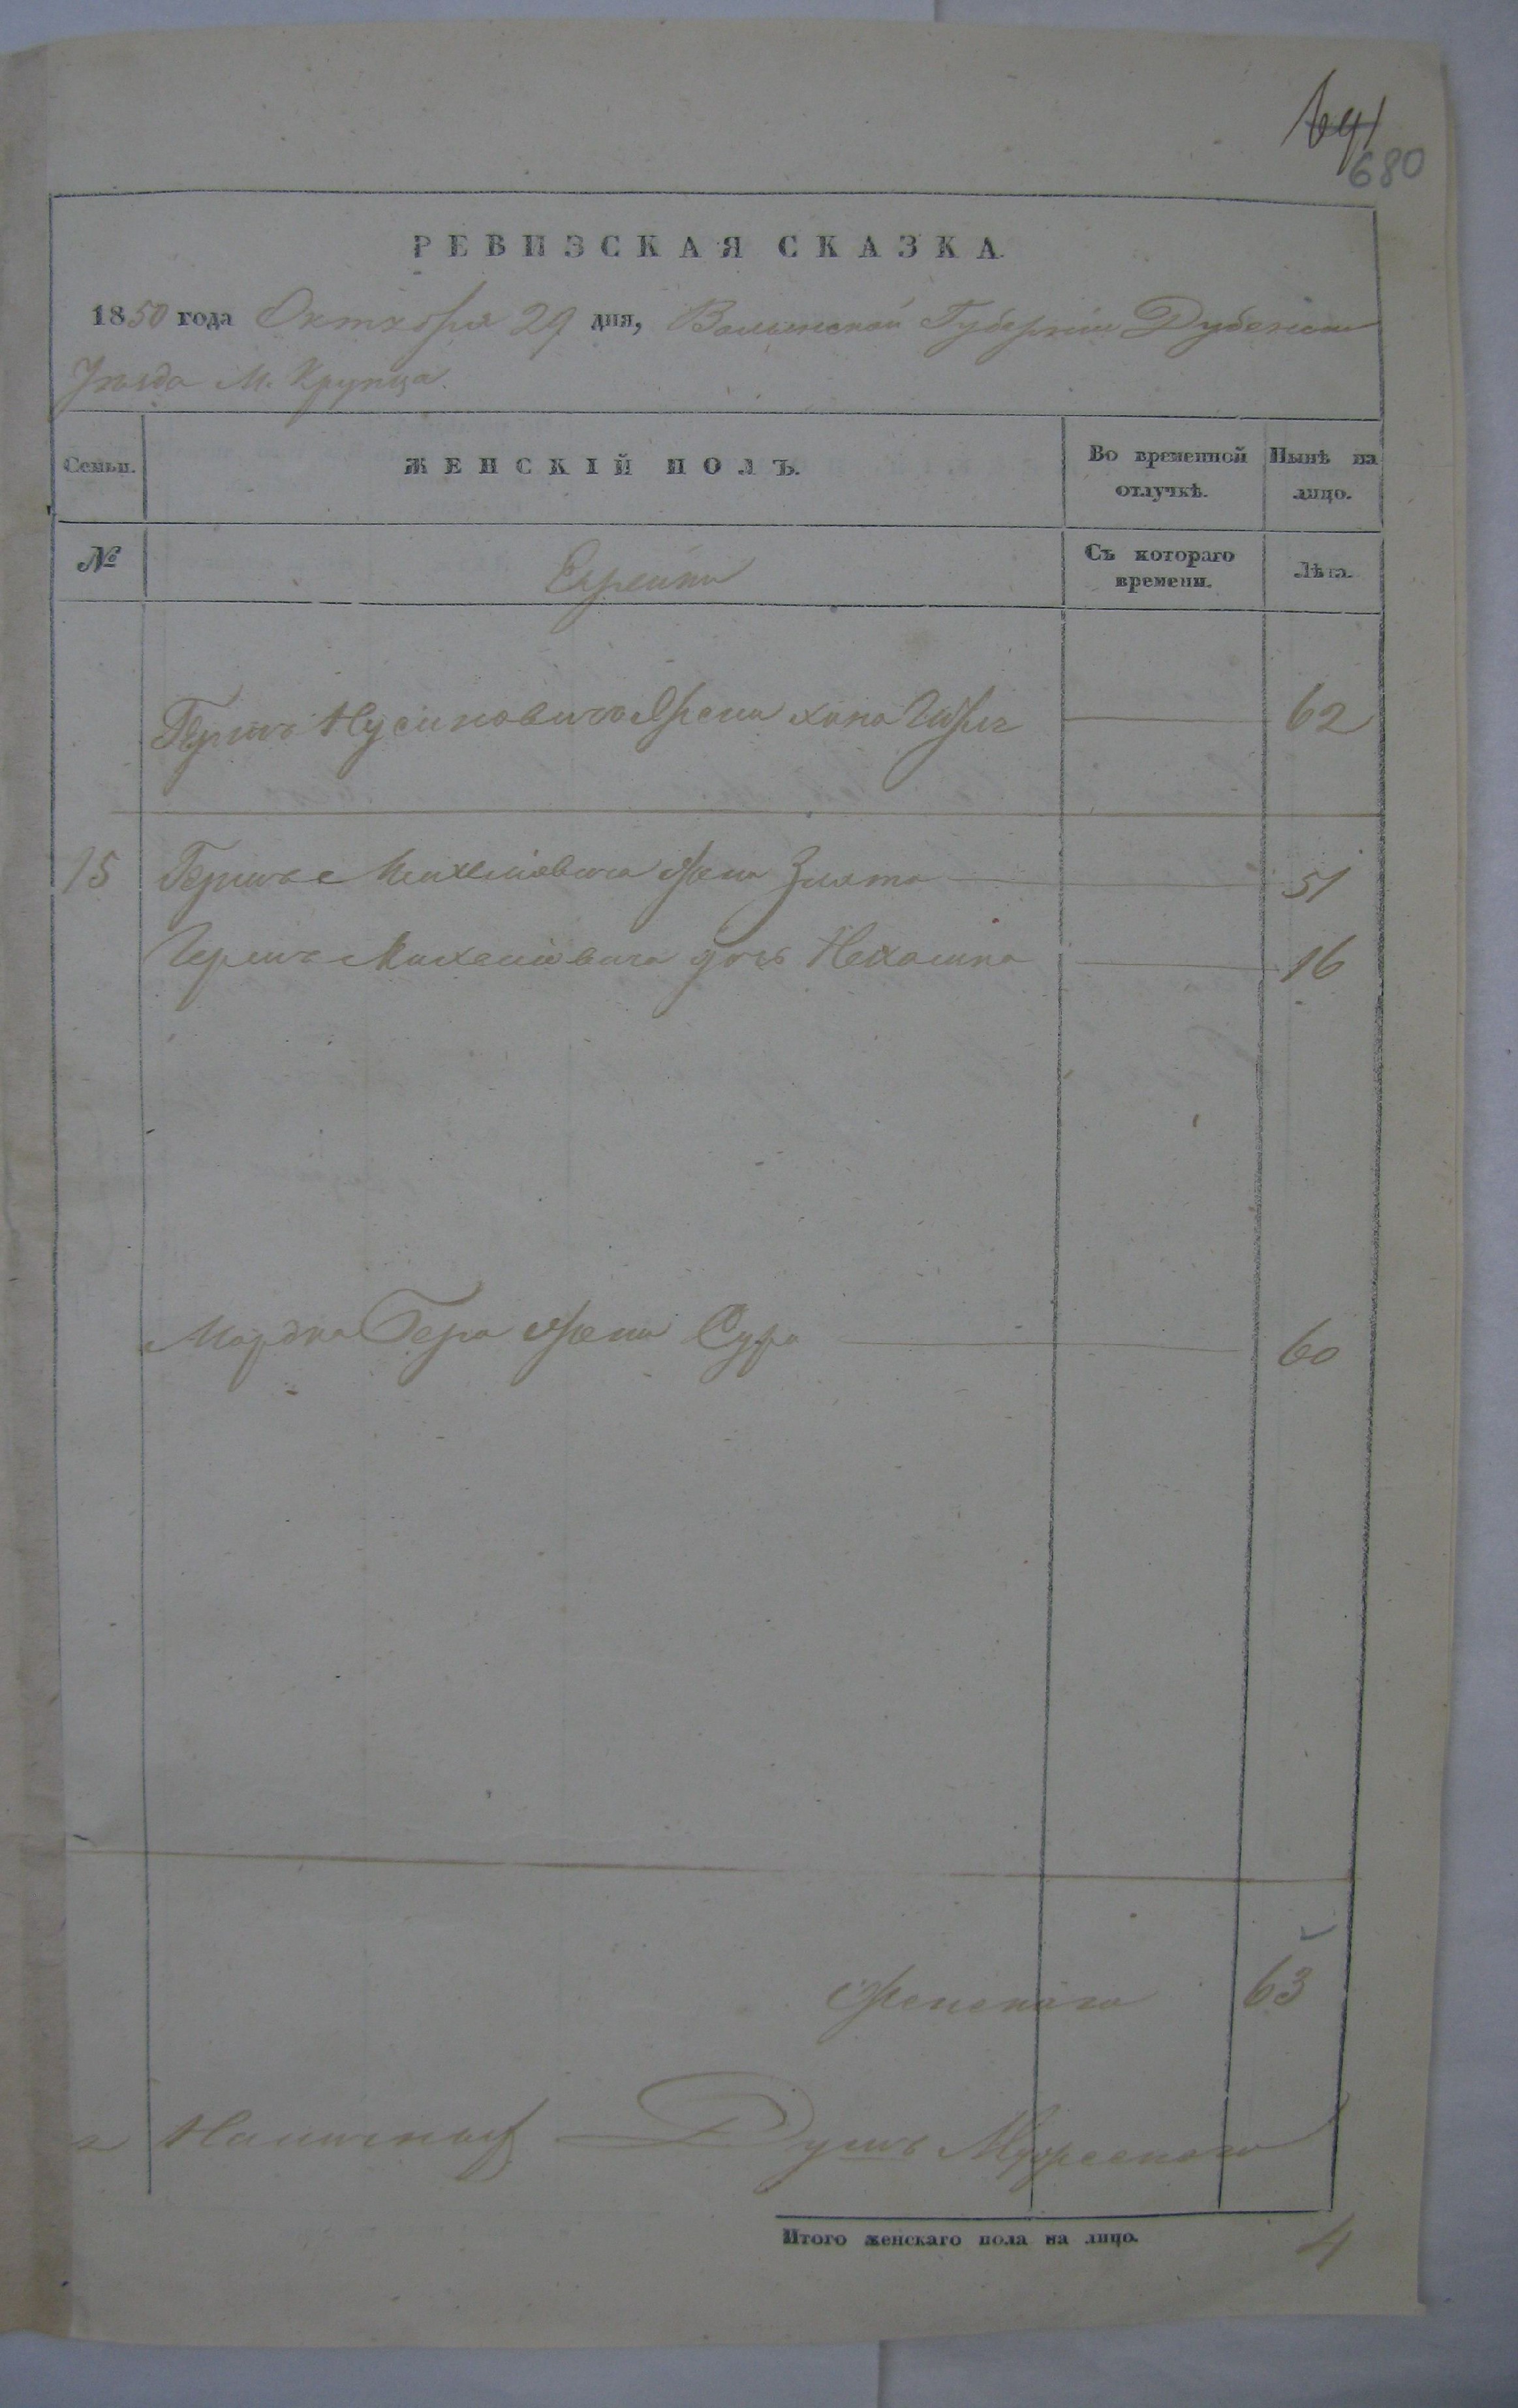 641
680
РЕВИЗСКАЯ СКАЗКА
1850 года Октября 29 дня, Волынской Губерніи Дубенскаго
Уѣзда М. Крупца.
Семьи. ЖЕНСКІЙ ПОЛЪ. Во временной отлучкѣ. Нынѣ на лицо.
№ Евреики Съ котораго времени. Лѣта.
Герша Нусиновича Жена Хана 62
15 Герша Михелiовича жена Злата 51
Герша Михелiовича дочь Нехамка 16
Мордка Бера жена Сура 60
Женскаго 63
Наличныхъ Душъ Мужескаго
Итого женскаго пола на лицо. 4